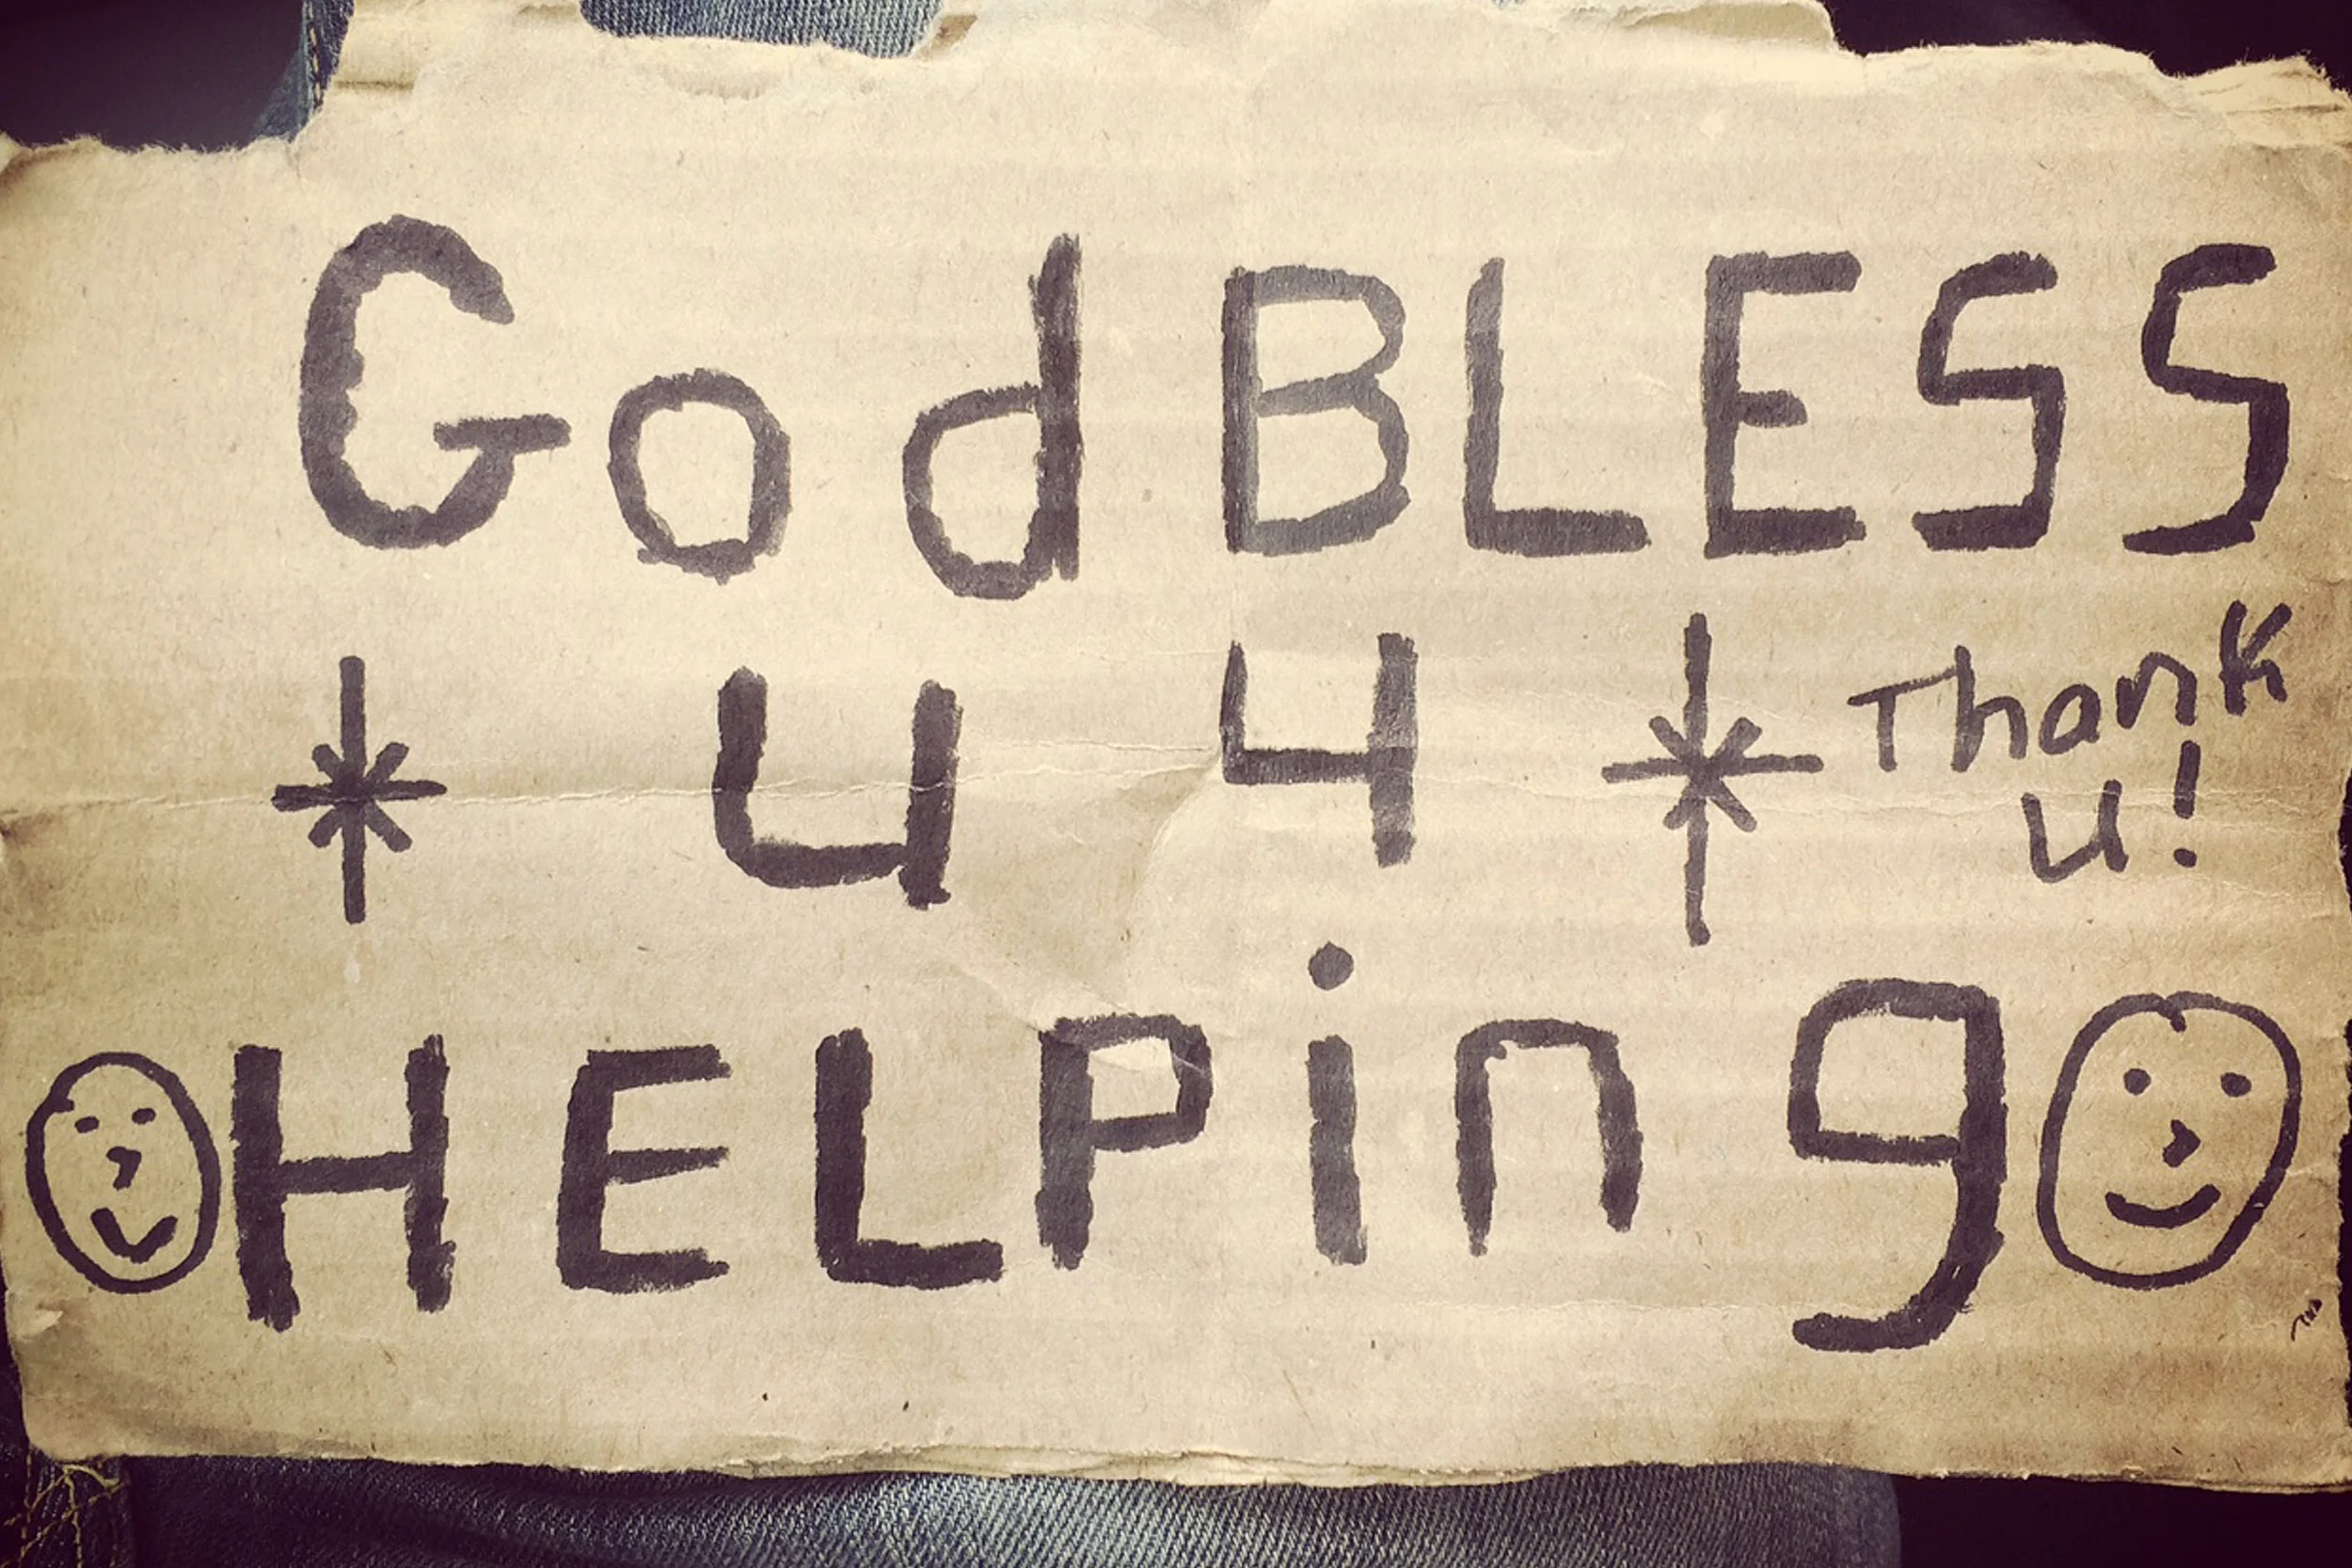 God BLESS
* U 4 * Thank
U!
HELPing